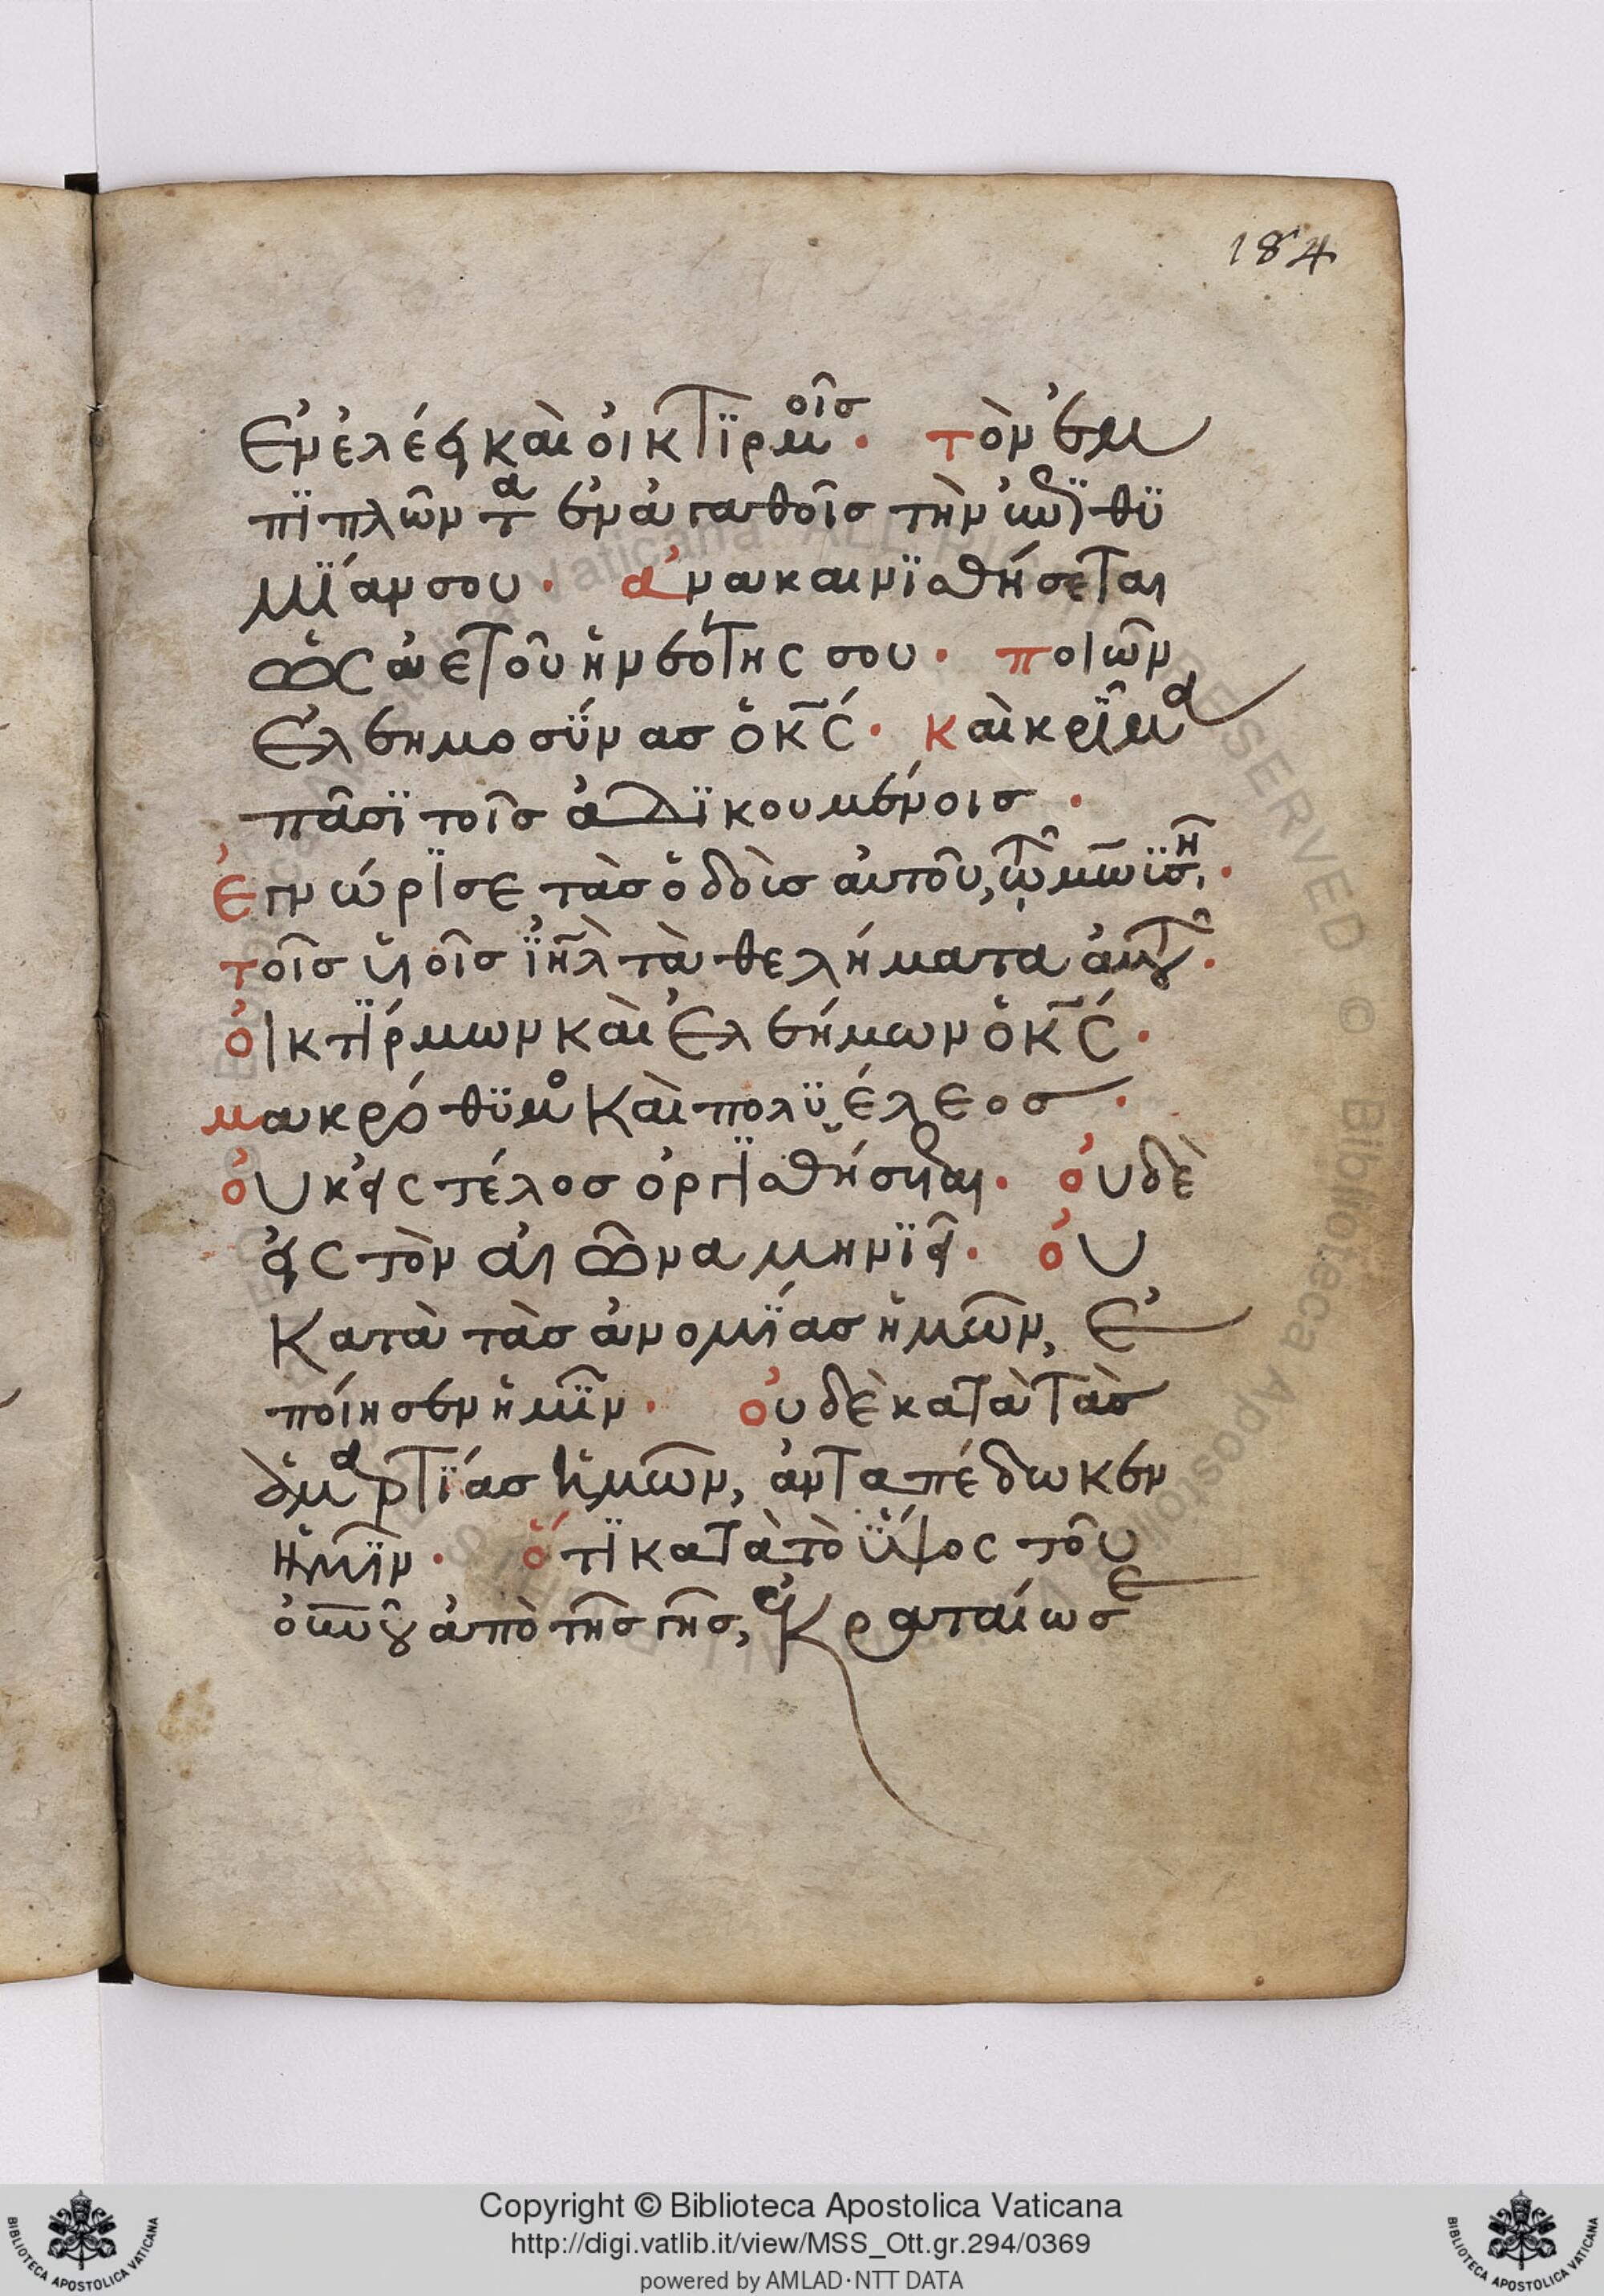 184
ἐν ἐλέει καὶ οἰκτϊρμοῖσ· τὸν ἐμ
πϊπλῶντα ἐν ἀγαθοῖσ τὴν ἐπϊθϋ
μΐαν σου· ἀνακαινϊσθήσεται
ὡς ἀετοῦ ἡ νεότης σου· ποιῶν
ἐλεημοσΰνασ ὁ κς· καὶ κρῖμα
πᾶσϊ τοῖσ ἀδϊκουμένοισ·
ἐγνώρϊσε τὰσ ὁδοὺσ αὐτοῦ, τῷ μωϋσῇ·
τοῖσ υἱοῖσ ϊηλ τὰ θελήματα αὐτοῦ·
οἰκτΐρμων καὶ ἐλεήμων ὁ κς·
μακρόθϋμος καὶ πολϋέλεοσ·
οὐκ εἰς τέλοσ ὀργϊσθήσεται· οὐδὲ
εἰς τὸν αἰῶνα μηνϊεῖ· οὐ
κατὰ τὰσ ἀνομΐασ ἡμῶν, ἐ
ποίησεν ἡμῖν· οὐδὲ κατὰ τὰσ
ἁμαρτΐασ ἡμῶν, ἀνταπέδωκεν
ἡμῖν· ὅτϊ κατὰ τὸ ὕψος τοῦ
οὐνοῦ ἀπὸ τῆσ γῆσ, ἐκραταίωσε
Copyright © Biblioteca Apostolica Vaticana
http://digi.vatlib.it/view/MSS_Ott.gr.294/0369
powered by AMLAD·NTT DATA
BIBLIOTECA APOSTOLICA VATICANA
BIBLIOTECA APOSTOLICA VATICANA